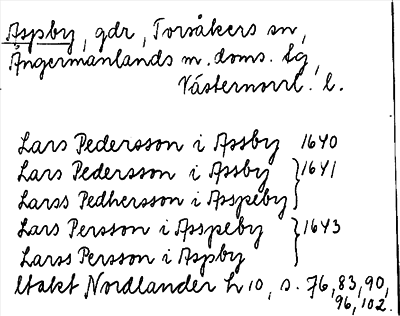 Aspby, gdr, Torsåkers sn,
Ångermanlands m. doms. sg,
Västernorrl. l.
Lars Pedersson i Assby 1640
Lars Pedersson i Assby } 1641
Larss Pedhersson i Asspeby
Lars Persson i Asspeby } 1643
Larss Persson i Aspby
Utakt Nordlander h 10, s. 76, 83, 90,
96, 102.